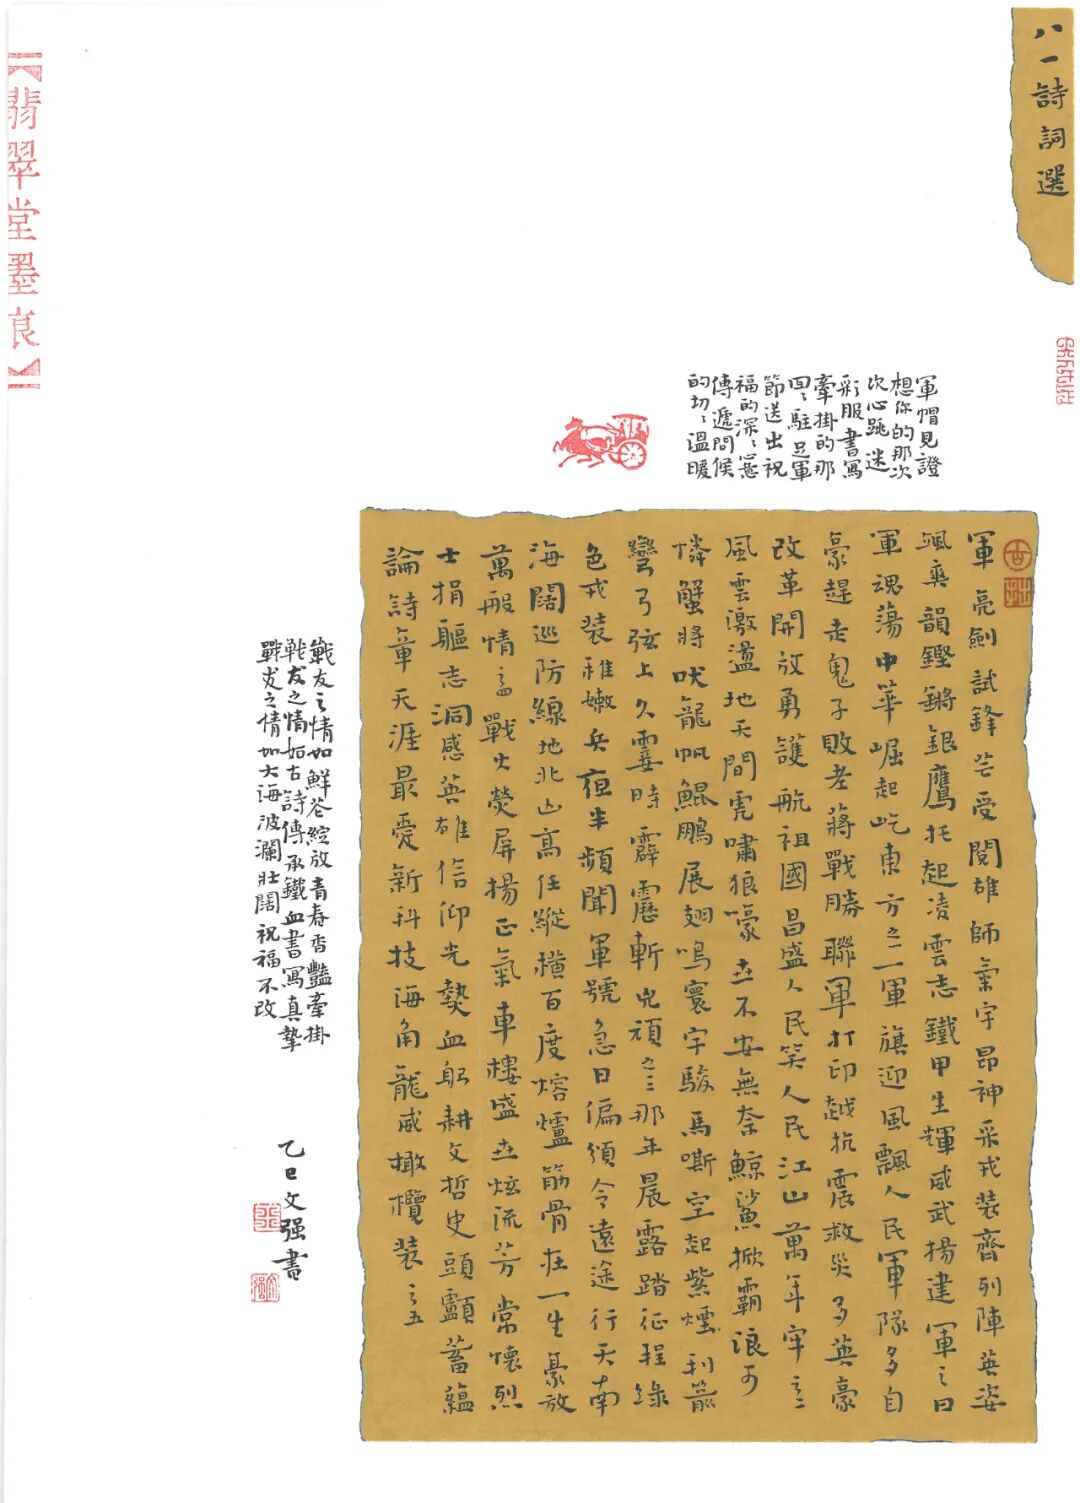 八一詩詞選
軍帽見證
想你的那次
次心跳迷
彩服書寫
牽掛的那
回〻駐足軍
節送出祝
福的深〻意
傳遞問候
的切〻溫暖
軍亮劍試鋒芒受閱雄師氣宇昂神采戎裝齊列陣英姿
颯爽韻鏗鏘銀鷹托起凌雲志鐵甲生輝威武揚建軍之日
軍魂蕩中華崛起屹東方之二軍旗迎風飄人民軍隊多自
豪趕走鬼子敗老蔣戰勝聯軍打印越抗震救災多英豪
改革開放勇護航祖國昌盛人民笑人民江山萬年牢之二
風雲激盪地天間虎嘯狼嚎世不安無奈鯨鯊掀霸浪可
憐蟹將吠龍帆鯤鵬展翅鳴寰宇駿馬嘶空起紫煙利箭
彎弓弦上久霎時霹靂斬兇頑之三那年晨露踏征程綠
色戎裝稚嫩兵夜半頻聞軍號急日偏頒令遠途行天南
海闊巡防線地北山高任縱橫百度熔爐筋骨在一生豪放
萬般情之四戰火熒屏揚正氣車樓盛世炫流芳常懷烈
士捐軀志洞感英雄信仰光熱血躬耕文哲史頭顱蓄蘊
論詩章天涯最愛新科技海角龍威橄欖裝之五
戰友之情如鮮花綻放青春香豔牽掛
戰友之情如古詩傳承鐵血書寫真摯
戰友之情如大海波瀾壯闊祝福不改
乙巳文强書
翡翠堂墨痕